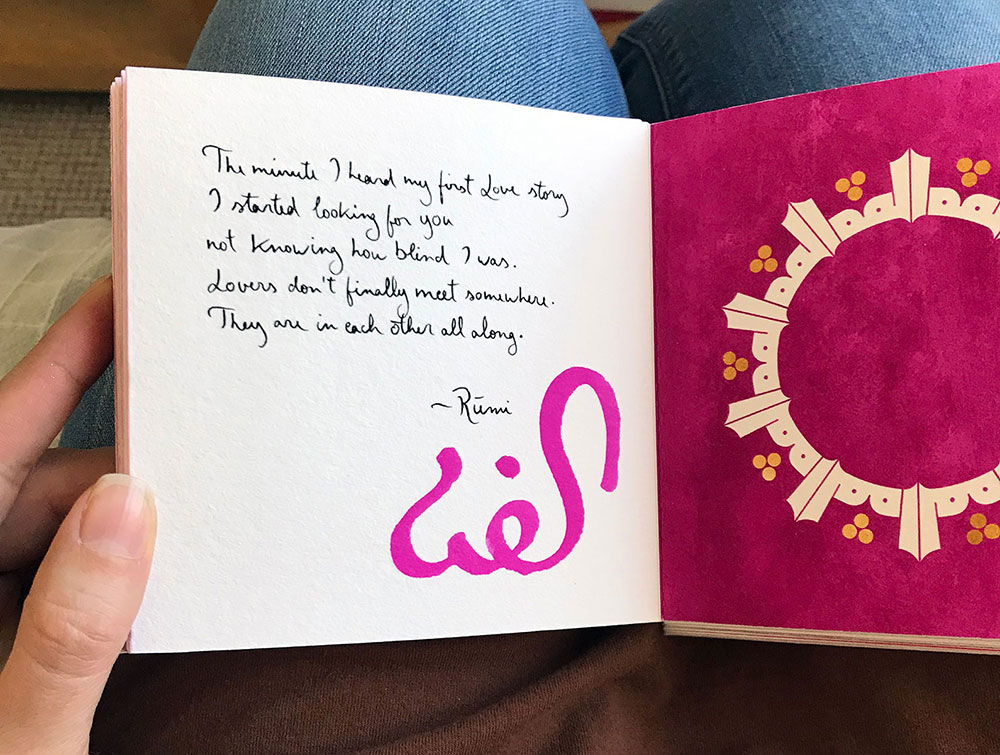 The minute I heard my first Love story
I started looking for you
not knowing how blind I was.
Lovers don't finally meet somewhere.
They are in each other all along.
~Rūmi